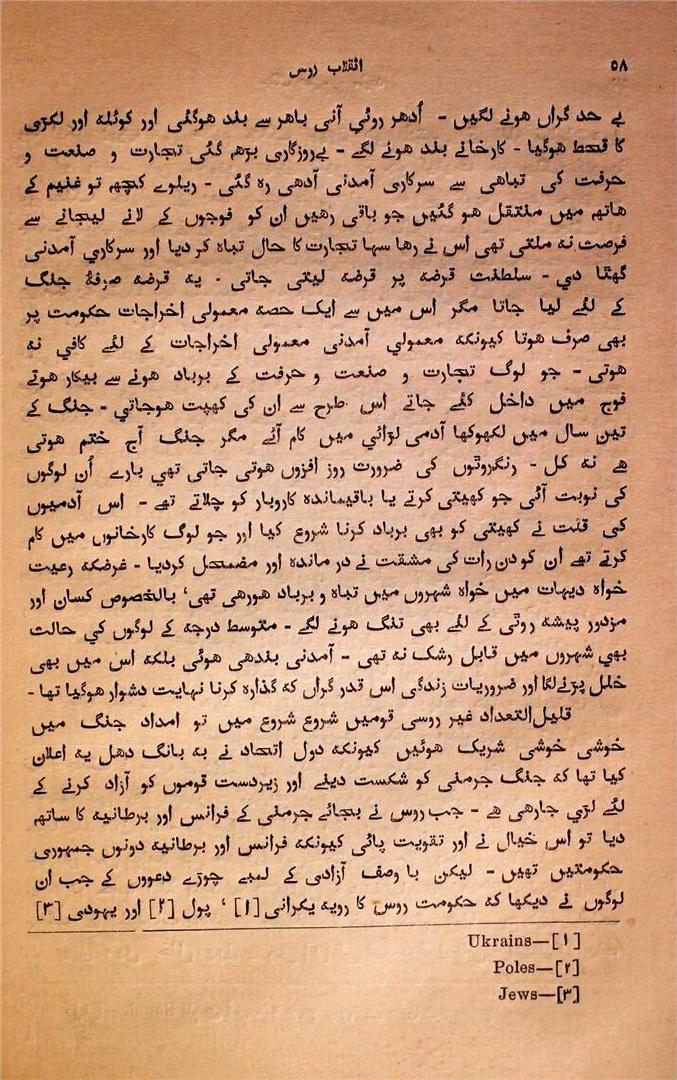 ۵۸
انقلاب روس
بے حد گراں هونے لگیں - اُدهر روئي آنی باهر سے بند هوگئی اور کوئلہ اور لکڑی
کا قحط هوگیا - کارخانے بند هونے لگے - بےروزگاری بڑھ گئی تجارت و صنعت و
حرفت کی تباهی سے سرکاری آمدنی آدهی رہ گئی - ریلوے کچھہ تو غنیم کے
هاتھہ میں منتقل هو گئیں جو باقی رهیں ان کو فوجوں کے لانے لیجانے سے
فرصت نہ ملتی تهی اس نے رها سہا تجارت کا حال تباہ کر دیا اور سرکاري آمدنی
گهٹا دي - سلطنت قرضہ پر قرضہ لیتی جاتی - یہ قرضہ صرفۂ جنگ
کے لئے لیا جاتا مگر اس میں سے ایک حصہ معمولی اخراجات حکومت پر
بهی صرف هوتا کیونکہ معمولي آمدنی معمولی اخراجات کے لئے کافي نہ
هوتی - جو لوگ تجارت و صنعت و حرفت کے برباد هونے سے بیکار هوتے
فوج میں داخل کئے جاتے اس طرح سے ان کی کهپت هوجاتي - جنگ کے
تین سال میں لکهوکها آدمی لڑائي میں کام آئے مگر جنگ آج ختم هوتی
هے نہ کل - رنگروٹوں کی ضرورت روز افزوں هوتی جاتی تهي بارے اُن لوگوں
کی نوبت آئی جو کهیتی کرتے یا باقیماندہ کاروبار کو چلاتے تهے - اس آدمیوں
کی قلت نے کهیتی کو بهی برباد کرنا شروع کیا اور جو لوگ کارخانوں میں کام
کرتے تهے ان کو دن رات کی مشقت نے در ماندہ اور مضمحل کردیا - غرضکہ رعیت
خواہ دیہات میں خواہ شہروں میں تباہ و برباد هورهی تهی، بالخصوص کسان اور
مزدور پیشہ روٹی کے لئے بهی تنگ هونے لگے - متوسط درجہ کے لوگوں کي حالت
بهي شہروں میں قابل رشک نہ تهی - آمدنی بندهی هوئی بلکہ اس میں بهی
خلل پڑنے لگا اور ضروریات زندگی اس قدر گراں کہ گذارہ کرنا نہایت دشوار هوگیا تها -
قلیل التعداد غیر روسی قومیں شروع شروع میں تو امداد جنگ میں
خوشی خوشی شریک هوئیں کیونکہ دول اتحاد نے بہ بانگ دهل یہ اعلان
کیا تها کہ جنگ جرمنی کو شکست دینے اور زیردست قوموں کو آزاد کرنے کے
لئے لڑي جارهی هے - جب روس نے بجائے جرمنی کے فرانس اور برطانیہ کا ساتهہ
دیا تو اس خیال نے اور تقویت پائی کیونکہ فرانس اور برطانیہ دونوں جمہوری
حکومتیں تهیں - لیکن با وصف آزادی کے لمبے چوڑے دعووں کے جب ان
لوگوں نے دیکها کہ حکومت روس کا رویہ یکرانی [۱] ، پول [۲] اور یہودی [۳]
Ukrains—[۱]
Poles—[۲]
Jews—[۳]